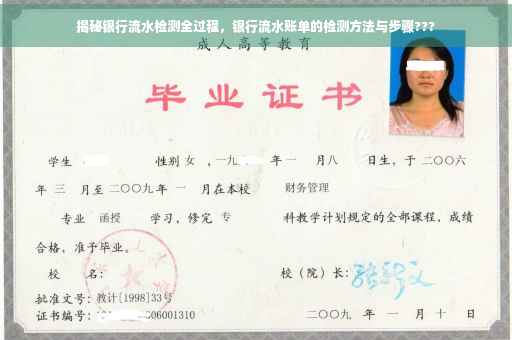 揭秘银行流水检测全过程，银行流水账单的检测方法与步骤???
成人高等教育
毕业证书
学生 性别 女 ，一九 年一 月八 日生，于二〇〇六
年 三 月至二〇〇九年 一 月在本校 财务管理
专业 函授 学习，修完 专 科教学计划规定的全部课程，成绩
合格，准予毕业。
校 名： 校（院）长：
批准文号：教计[1998]33号
证书编号： 06001310 二〇〇九 年 一 月 十 日